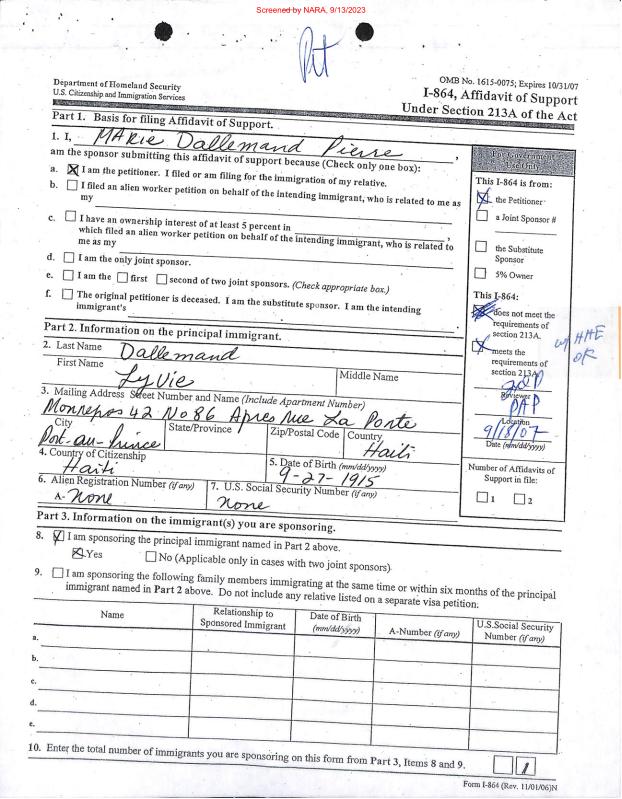 Screened by NARA, 9/13/2023
Pet
Department of Homeland Security
U.S. Citizenship and Immigration Services
OMB No. 1615-0075; Expires 10/31/07
I-864, Affidavit of Support
Under Section 213A of the Act
Part 1. Basis for filing Affidavit of Support.
1. I, MARie Dallemand Pierre ,
am the sponsor submitting this affidavit of support because (Check only one box):
a. I am the petitioner. I filed or am filing for the immigration of my relative.
b. I filed an alien worker petition on behalf of the intending immigrant, who is related to me as
my
c. I have an ownership interest of at least 5 percent in ,
which filed an alien worker petition on behalf of the intending immigrant, who is related to
me as my .
d. I am the only joint sponsor.
e. I am the first second of two joint sponsors. (Check appropriate box.)
f. The original petitioner is deceased. I am the substitute sponsor. I am the intending
immigrant's .
For Government
Use Only
This I-864 is from:
the Petitioner
a Joint Sponsor #
the Substitute
Sponsor
5% Owner
This I-864:
does not meet the
requirements of
section 213A.
meets the
requirements of
section 213A.
w/ HHE
OK
Reviewer
PAP
Location
9/18/07
Date (mm/dd/yyyy)
Number of Affidavits of
Support in file:
1 2
Part 2. Information on the principal immigrant.
2. Last Name Dallemand
First Name LyVie
Middle Name
3. Mailing Address Street Number and Name (Include Apartment Number)
Monrepos 42 No 86 Apres Rue La Porte
City Port-au-Prince
State/Province
Zip/Postal Code
Country Haiti
4. Country of Citizenship
Haiti
5. Date of Birth (mm/dd/yyyy)
9-27-1915
6. Alien Registration Number (if any)
A- None
7. U.S. Social Security Number (if any)
none
Part 3. Information on the immigrant(s) you are sponsoring.
8. I am sponsoring the principal immigrant named in Part 2 above.
Yes No (Applicable only in cases with two joint sponsors)
9. I am sponsoring the following family members immigrating at the same time or within six months of the principal
immigrant named in Part 2 above. Do not include any relative listed on a separate visa petition.
Name
Relationship to
Sponsored Immigrant
Date of Birth
(mm/dd/yyyy)
A-Number (if any)
U.S.Social Security
Number (if any)
a.
b.
c.
d.
e.
10. Enter the total number of immigrants you are sponsoring on this form from Part 3, Items 8 and 9. 1
Form I-864 (Rev. 11/01/06)N